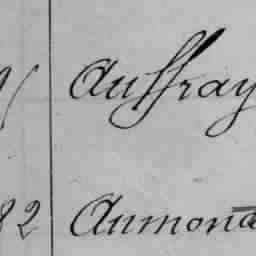 Auffray
82 Aumona